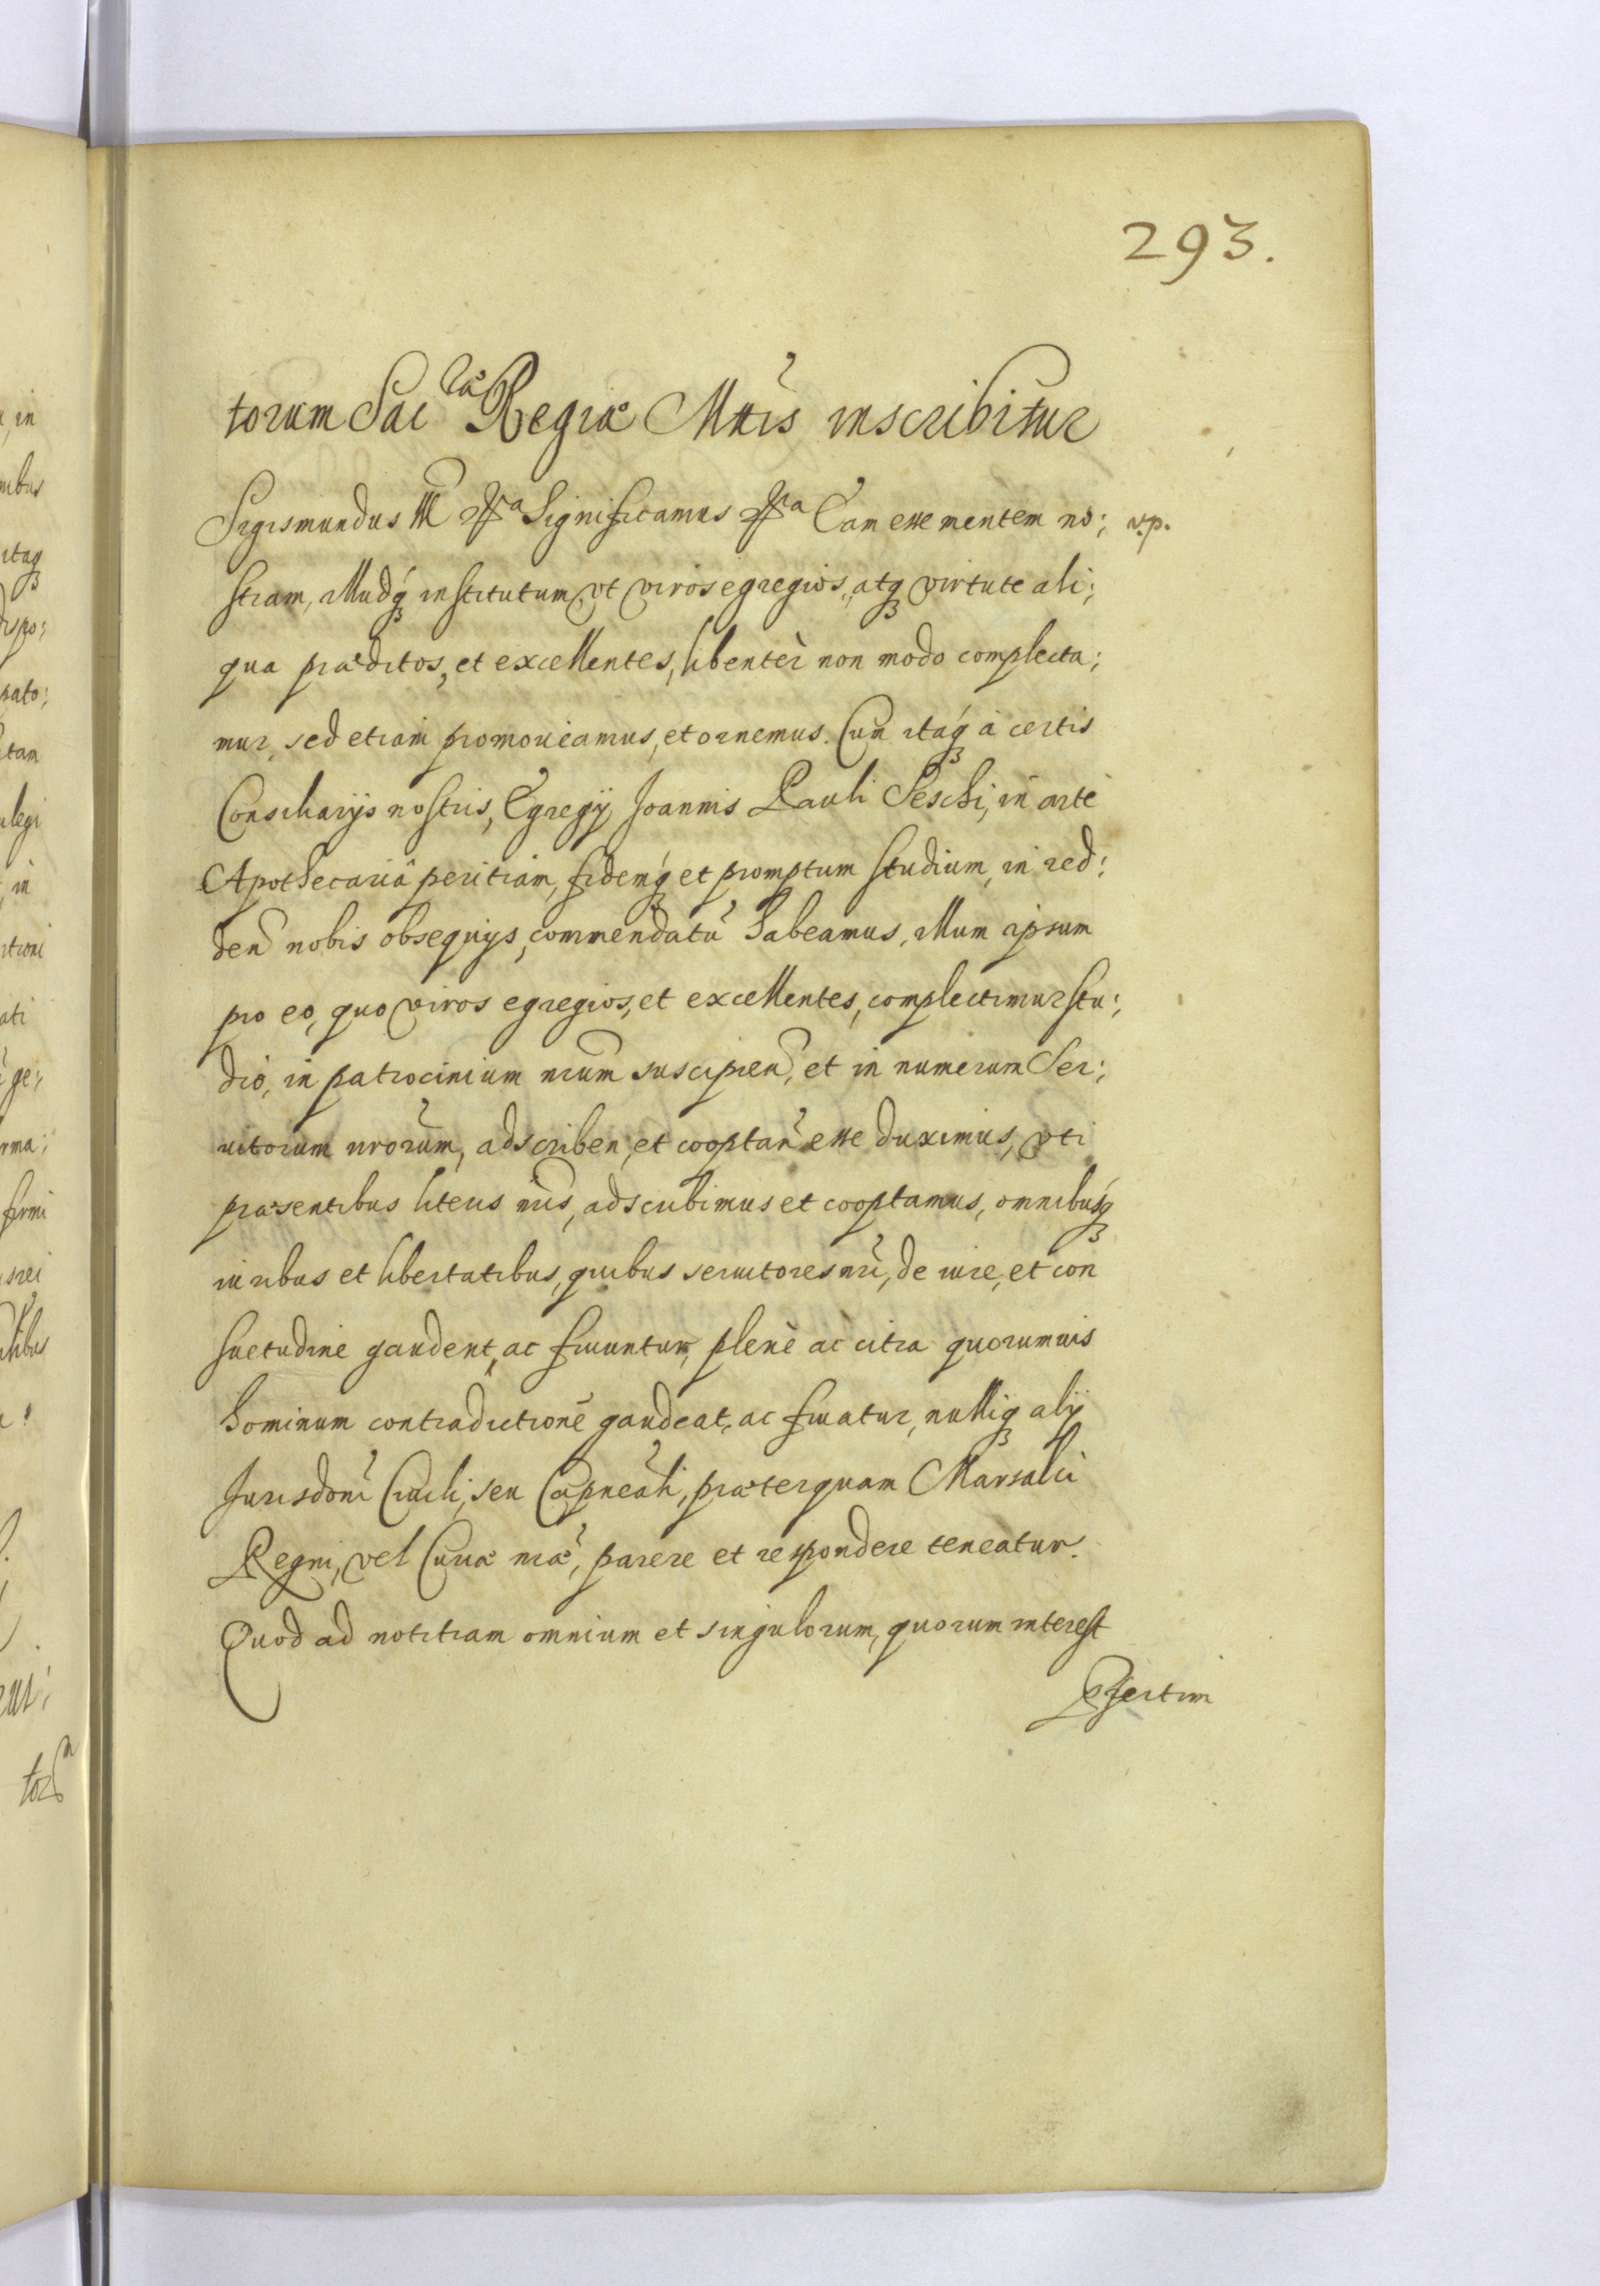 293.
torum Sac^rae Regiae Mttis inscribitur
Sigismundus III etca Significamus etca Eam esse mentem no; np.
stram, illudq́ institutum, vt viros egregios, atq virtute ali;
qua praeditos, et excellentes, libentèr non modo complecta;
mur, sed etiam promoueamus, et ornemus. Cum itaq́ à certis
Consiliarijs nostris, Egregij Joannis Pauli Seschi, in arte
Apothecariâ peritiam, fidemq́ et promptum studium, in red;
den nobis obsequijs, commendatũ habeamus, illum ipsum
pro eo, quo viros egregios, et excellentes, complectimur stu;
dio, in patrocinium nrum suscipien, et in numerum Ser;
uitorum nrorum, adscriben, et cooptan esse duximus, vti
praesentibus literis nris, adscribimus et cooptamus, omnibusq́
iuribus et libertatibus, quibus seruitores nri, de iure, et con
suetudine gaudent, ac fruuntur, plenè ac citra quorumuis
hominum contradictionẽ gaudeat, ac fruatur, nulliq alij
Jurisdoni Ciuili, seu Capneali, praeterquam Marsalci
Regni, vel Curiae nrae, parere et respondere teneatur.
Quod ad notitiam omnium et singulorum, quorum interest
Psertim